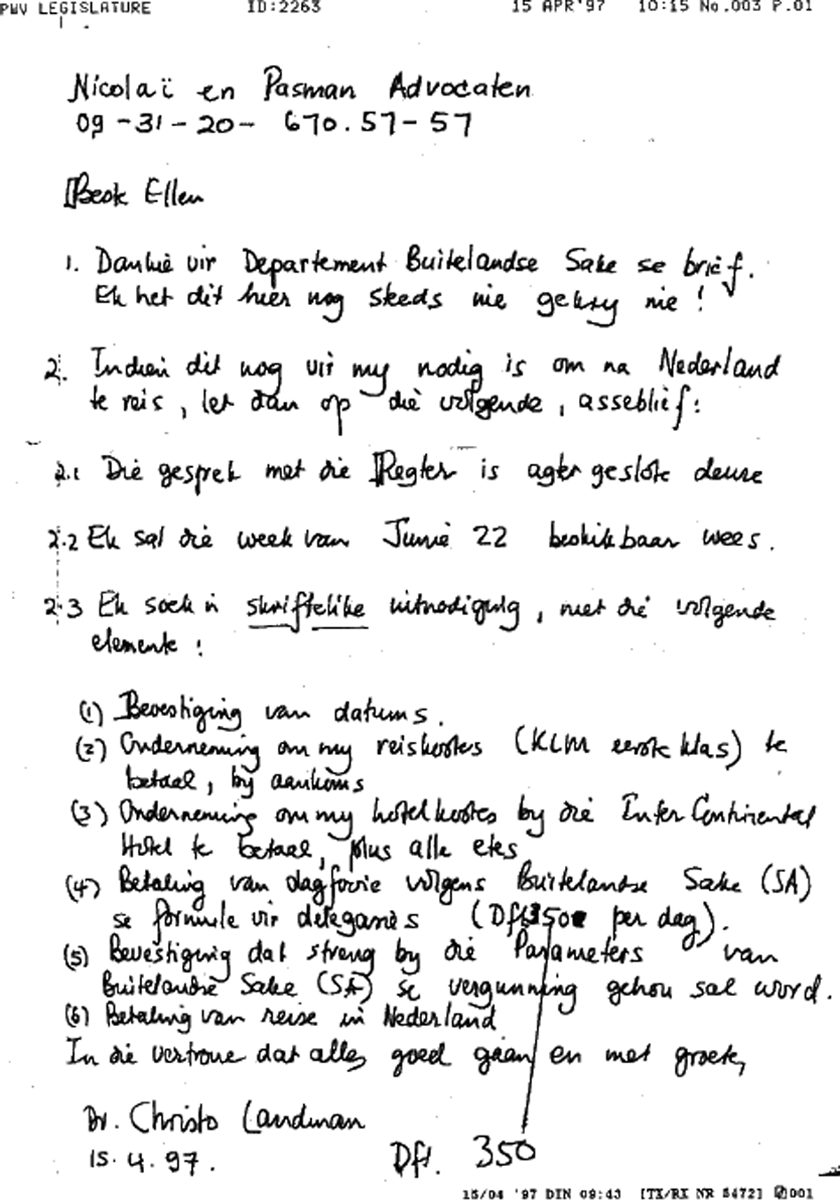 PWV LEGISLATURE ID:2263 15 APR'97 10:15 No.003 P.01
Nicolaï en Pasman Advocaten
09-31-20- 670.57-57
Beste Ellen
1. Dankie vir Departement Buitelandse Sake se brief.
Ek het dit hier nog steeds nie gekry nie!
2. Indien dit nog vir my nodig is om na Nederland
te reis, let dan op die volgende, asseblief:
2.1 Die gesprek met die Regter is agter geslote deure
2.2 Ek sal die week van Junie 22 beskikbaar wees.
2.3 Ek soek 'n skriftelike uitnodiging, met die volgende
elemente:
(1) Bevestiging van datums.
(2) Onderneming om my reiskostes (KLM eerste klas) te
betaal, by aankoms
(3) Onderneming om my hotelkostes by die InterContinental
Hotel te betaal, plus alle etes
(4) Betaling van dagfooie volgens Buitelandse Sake (SA)
se formule vir delegasies (Dfl 350 per dag).
(5) Bevestiging dat streng by die Parameters van
Buitelandse Sake (SA) se vergunning gehou sal word.
(6) Betaling van reise in Nederland
In die vertroue dat alles goed gaan en met groete,
Dr. Christo Landman
15.4.97. Dfl. 350
15/04 '97 DIN 09:43 [TX/RX NR 5472] 001